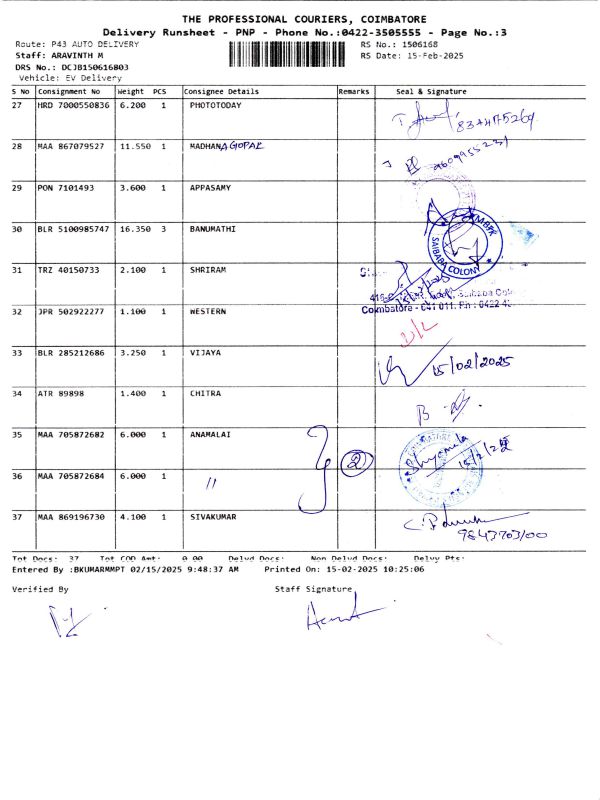 THE PROFESSIONAL COURIERS, COIMBATORE
Delivery Runsheet - PNP - Phone No.:0422-3505555 - Page No.:3
Route: P43 AUTO DELIVERY RS No.: 1506168
Staff: ARAVINTH M RS Date: 15-Feb-2025
DRS No.: DCJB150616803
Vehicle: EV Delivery
S No Consignment No Weight PCS Consignee Details Remarks Seal & Signature
27 HRD 7000550836 6.200 1 PHOTOTODAY
28 MAA 867079527 11.550 1 MADHANAGOPAL
29 PON 7101493 3.600 1 APPASAMY
30 BLR 5100985747 16.350 3 BANUMATHI
SAIBABA COLONY
31 TRZ 40150733 2.100 1 SHRIRAM
Saibaba
Coimbatore - 641 011. Ph : 0422
32 JPR 502922277 1.100 1 WESTERN
33 BLR 285212686 3.250 1 VIJAYA 15/02/2025
34 ATR 89898 1.400 1 CHITRA
35 MAA 705872682 6.000 1 ANAMALAI
Shyamala
36 MAA 705872684 6.000 1 " 2
37 MAA 869196730 4.100 1 SIVAKUMAR
9843703100
Tot Docs: 37 Tot COD Amt: 0.00 Delvd Docs: Non Delvd Docs: Delvy Pts:
Entered By :BKUMARMMPT 02/15/2025 9:48:37 AM Printed On: 15-02-2025 10:25:06
Verified By Staff Signature